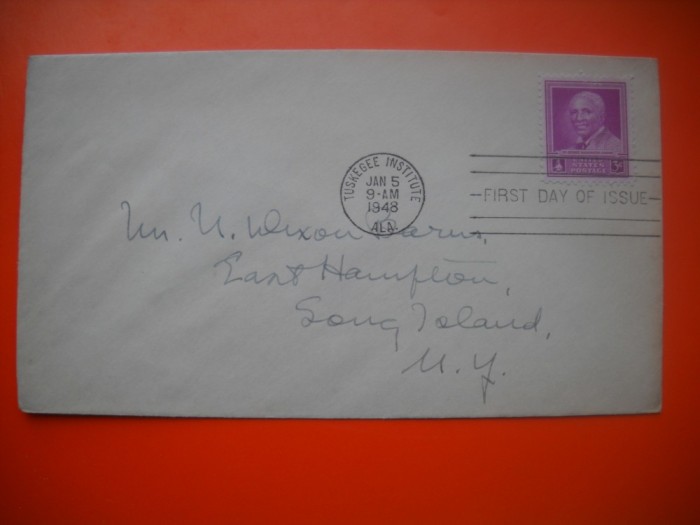 UNITED
STATES
POSTAGE
3¢
TUSKEGEE INSTITUTE
JAN 5
9-AM
1948
ALA.
FIRST DAY OF ISSUE
Mr. N. Dixon
East Hampton,
Long Island,
N.Y.